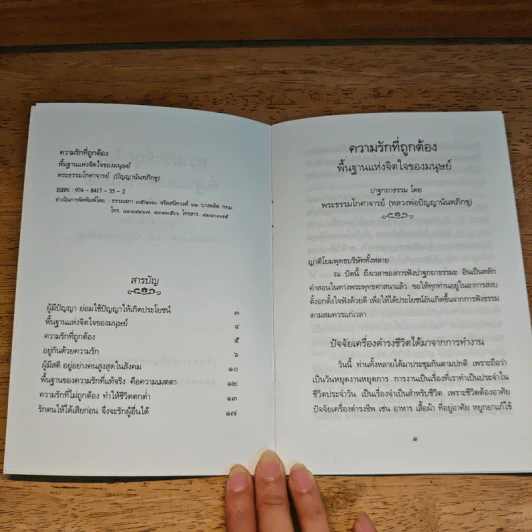 ความรักที่ถูกต้อง
พื้นฐานแห่งจิตใจของมนุษย์
พระธรรมโกศาจารย์ (ปัญญานันทภิกขุ)
ISBN : 974 - 8417 - 33 - 2
ดำเนินการจัดพิมพ์โดย : ธรรมสภา
โทร.
สารบัญ
ผู้มีปัญญา ย่อมใช้ปัญญาให้เกิดประโยชน์ ๓
พื้นฐานแห่งจิตใจของมนุษย์ ๔
ความรักที่ถูกต้อง ๕
อยู่กันด้วยความรัก ๖
ผู้มีสติ อยู่อย่างคนสูงสุดในสังคม ๑๐
พื้นฐานของความรักที่แท้จริง คือความเมตตา ๑๒
ความรักที่ไม่ถูกต้อง ทำให้ชีวิตตกต่ำ ๑๓
รักตนให้ได้เสียก่อน จึงจะรักผู้อื่นได้ ๑๗
ความรักที่ถูกต้อง
พื้นฐานแห่งจิตใจของมนุษย์
ปาฐกถาธรรม โดย
พระธรรมโกศาจารย์ (หลวงพ่อปัญญานันทภิกขุ)
ญาติโยมพุทธบริษัททั้งหลาย
ณ บัดนี้ ถึงเวลาของการฟังปาฐกถาธรรมะ อันเป็นหลัก
คำสอนในทางพระพุทธศาสนาแล้ว ขอให้ทุกท่านอยู่ในอาการสงบ
ตั้งอกตั้งใจฟังด้วยดี เพื่อให้ได้ประโยชน์อันเกิดขึ้นจากการฟังธรรม
ตามสมควรแก่เวลา
ปัจจัยเครื่องดำรงชีวิตได้มาจากการทำงาน
วันนี้ ท่านทั้งหลายได้มาประชุมกันตามปกติ เพราะถือว่า
เป็นวันหยุดงานหยุดการ การงานเป็นเรื่องที่เราทำเป็นประจำใน
ชีวิตประจำวัน เป็นเรื่องจำเป็นสำหรับชีวิต เพราะชีวิตต้องอาศัย
ปัจจัยเครื่องดำรงชีพ เช่น อาหาร เสื้อผ้า ที่อยู่อาศัย หยูกยาแก้ไข้
๑